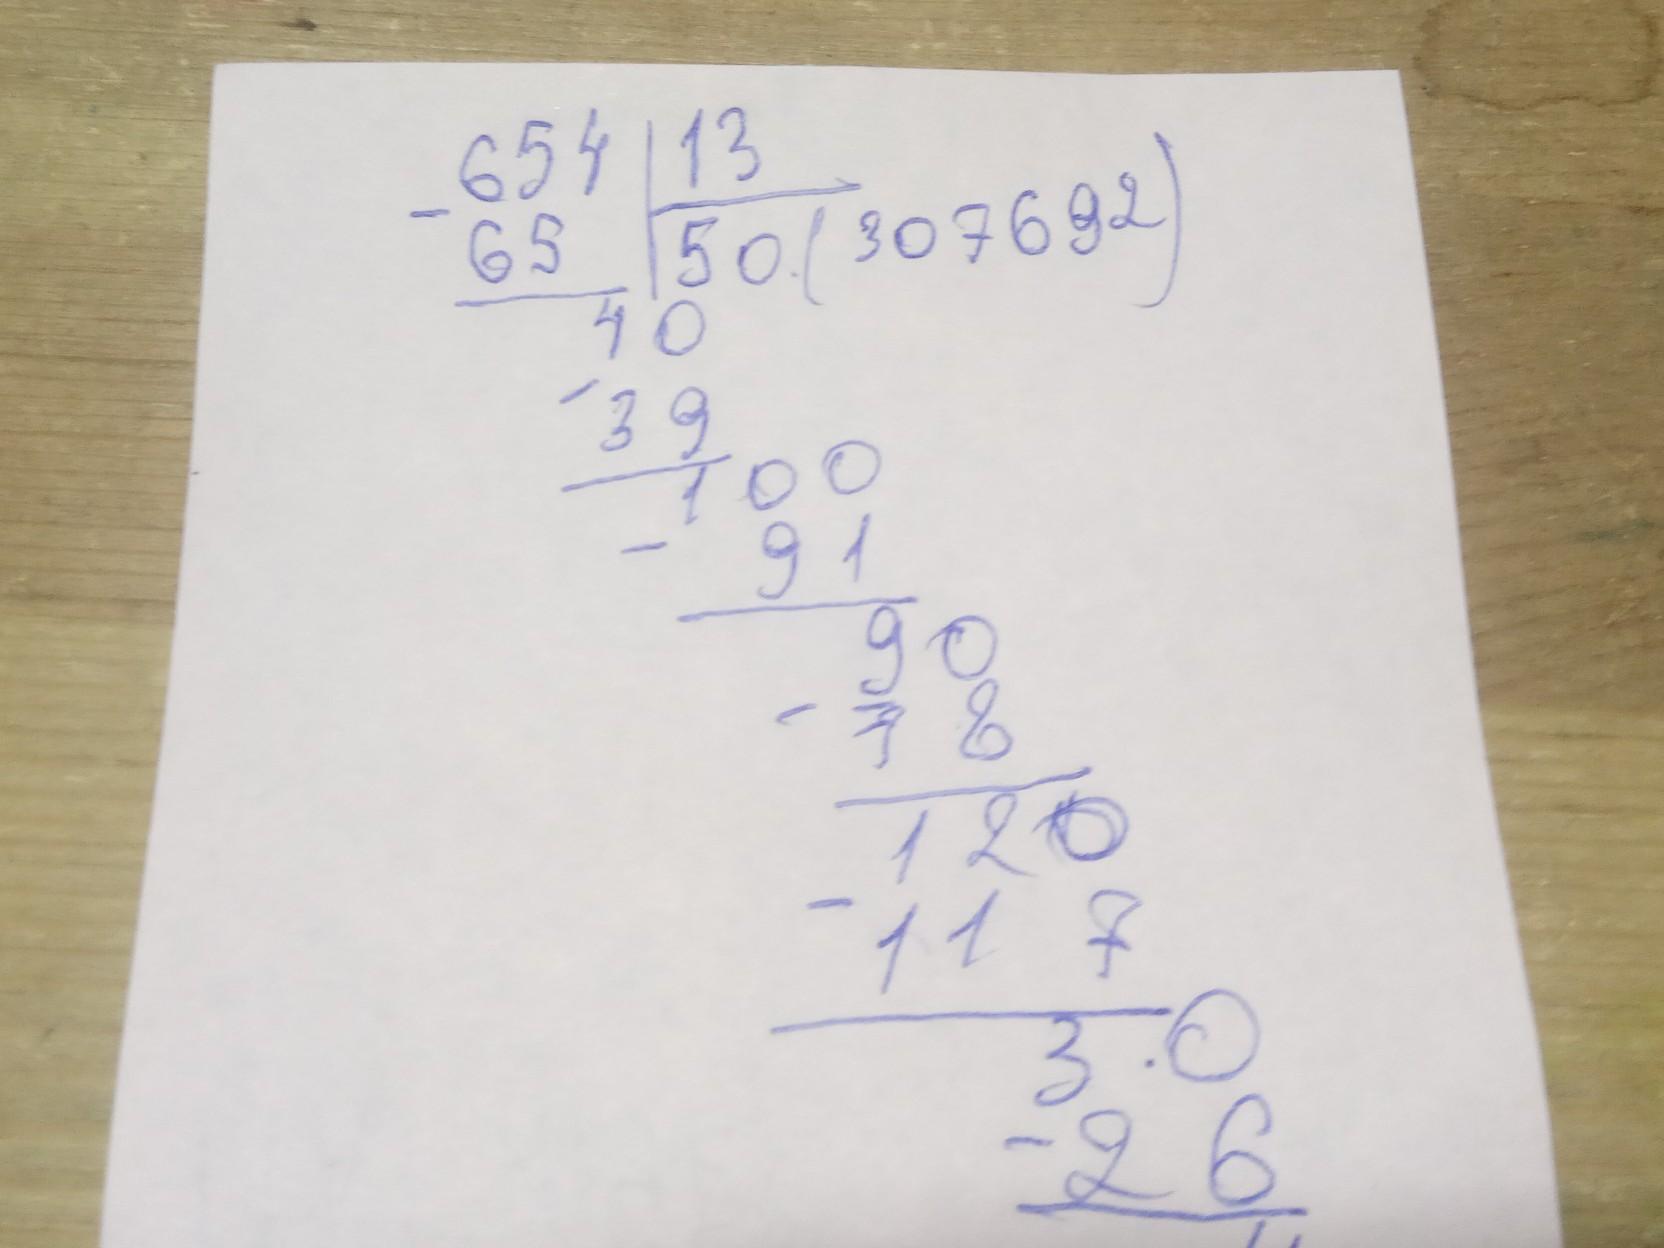 654 13
- 65 50.(307692)
40
- 39
100
- 91
90
- 78
120
- 117
3.0
- 26
4